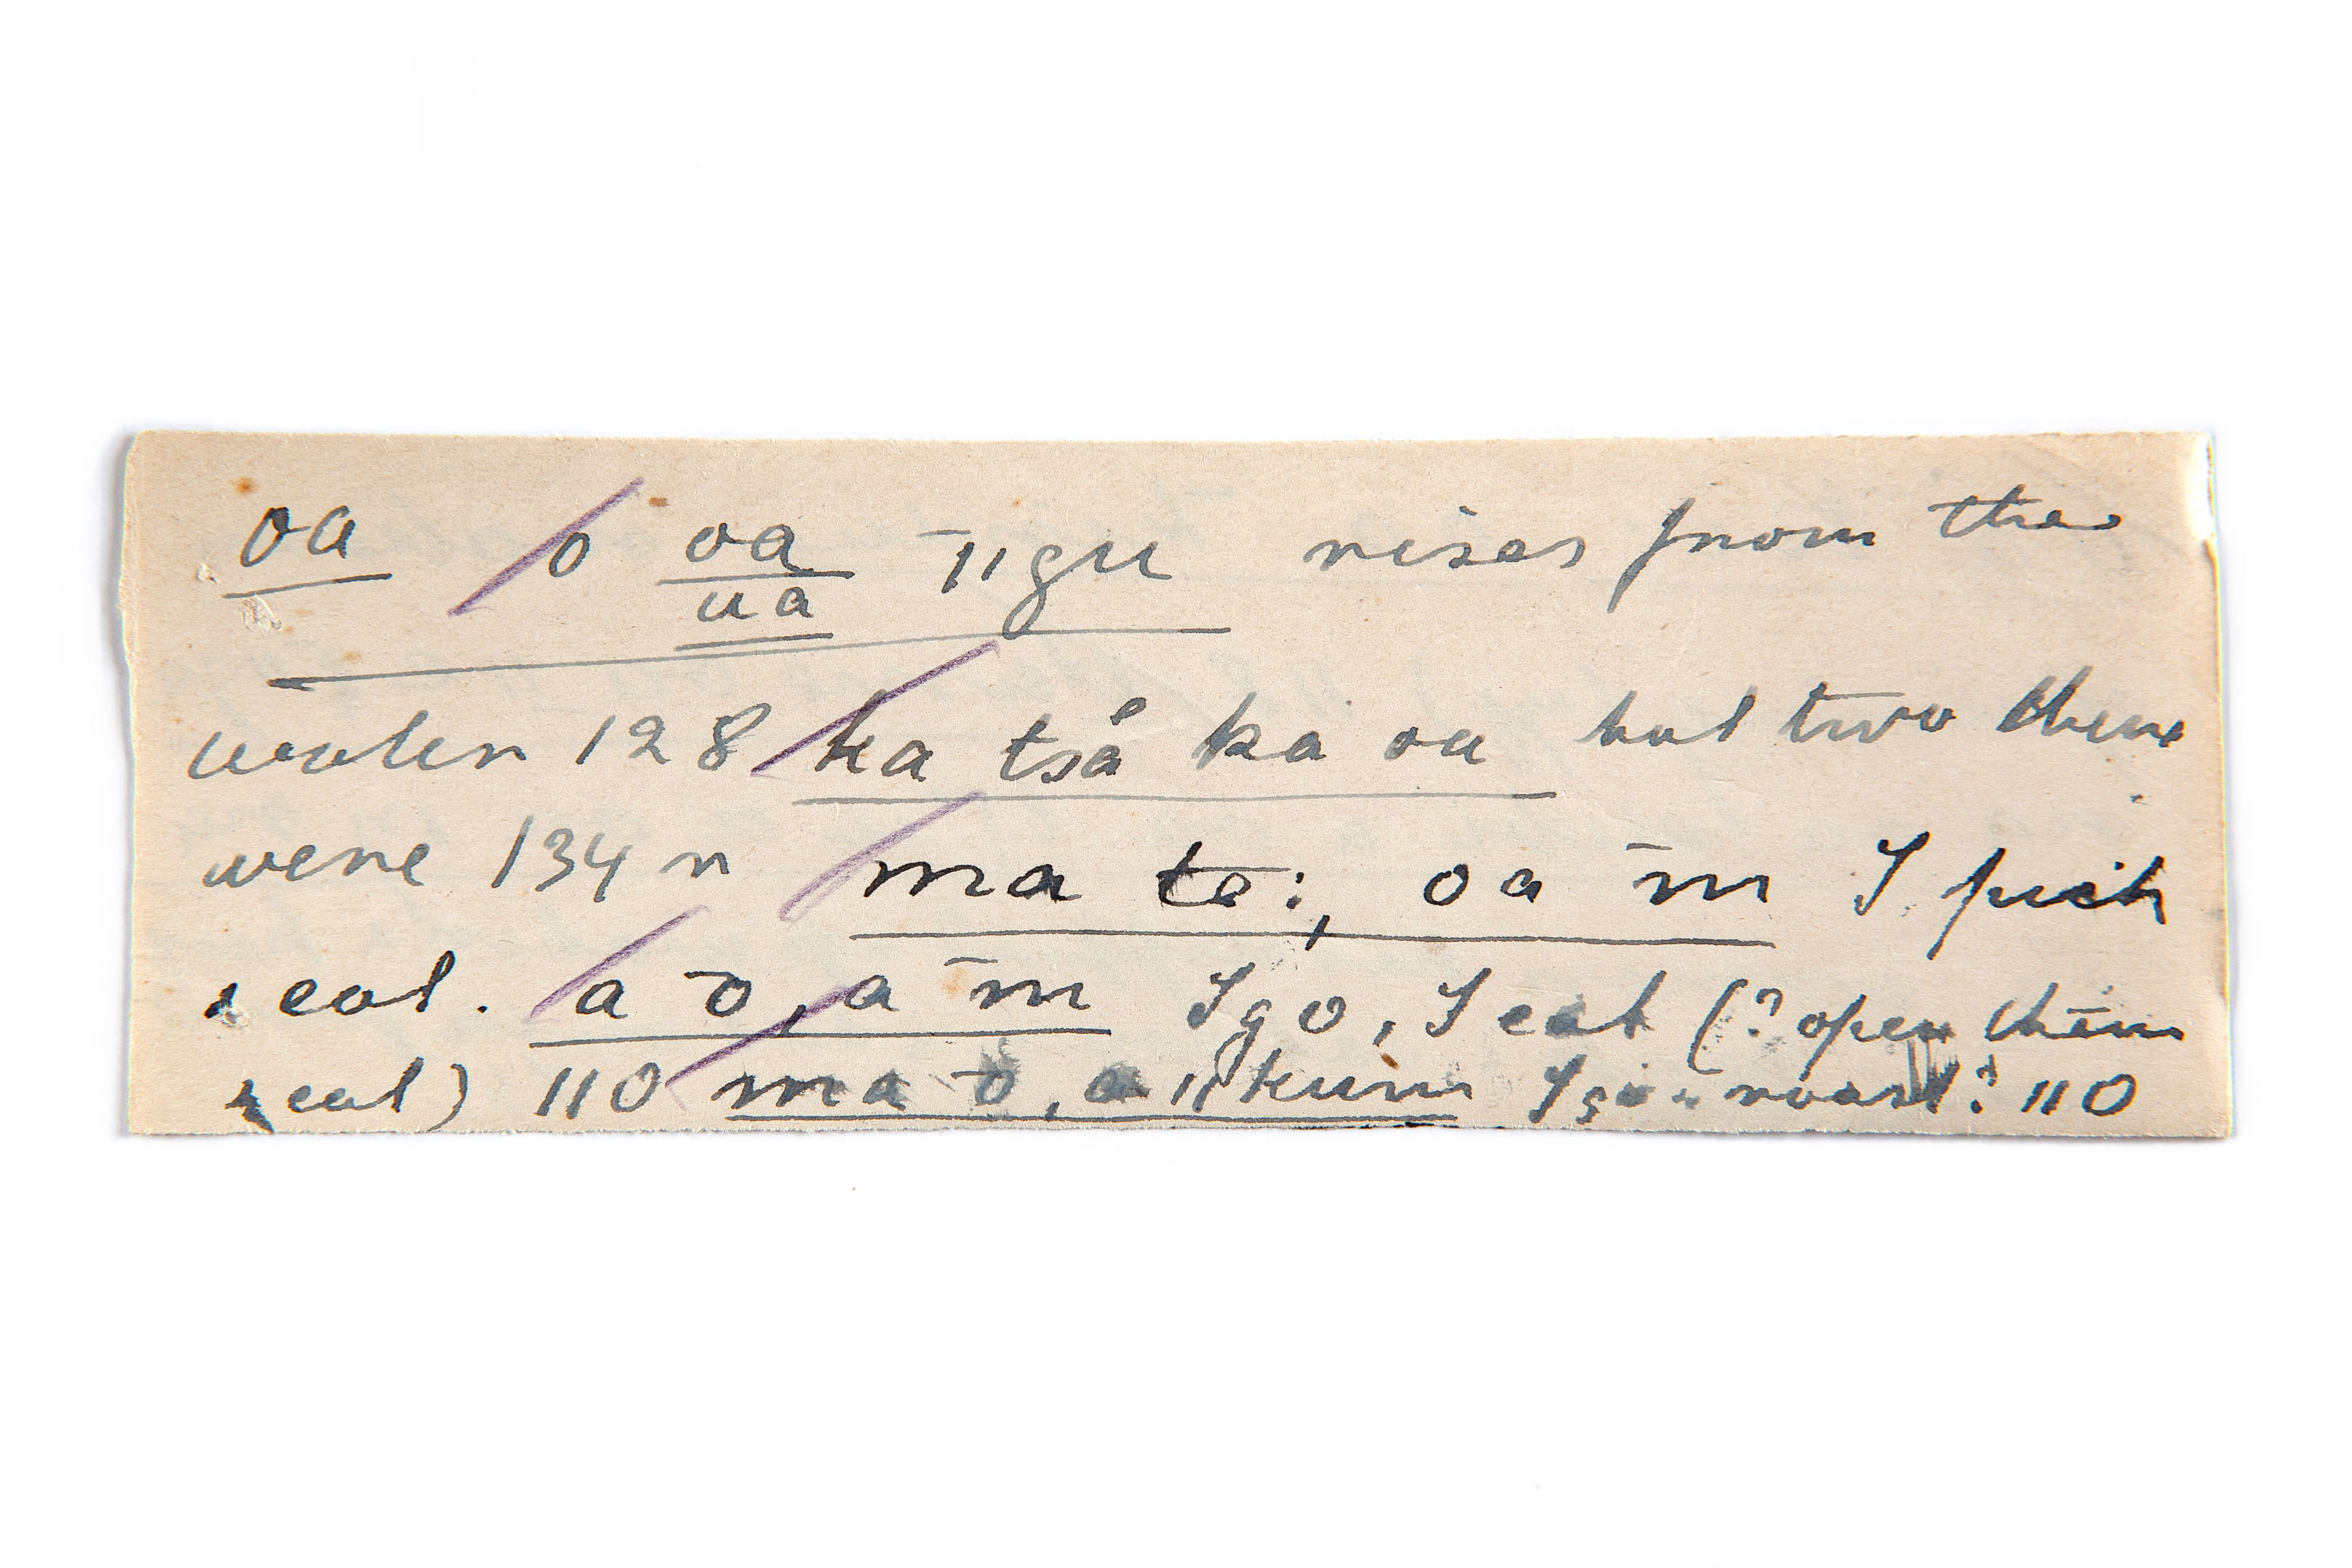 oa o oa ‖gu rises from the
ua
water 128 ka tsá ka oa but two there
were 134 r ma te:, oa m̄ I pick
& eat. a ō, a m̄ I go, I eat (? open them
& eat) 110 ma ō, a ‖kum I go roast? 110